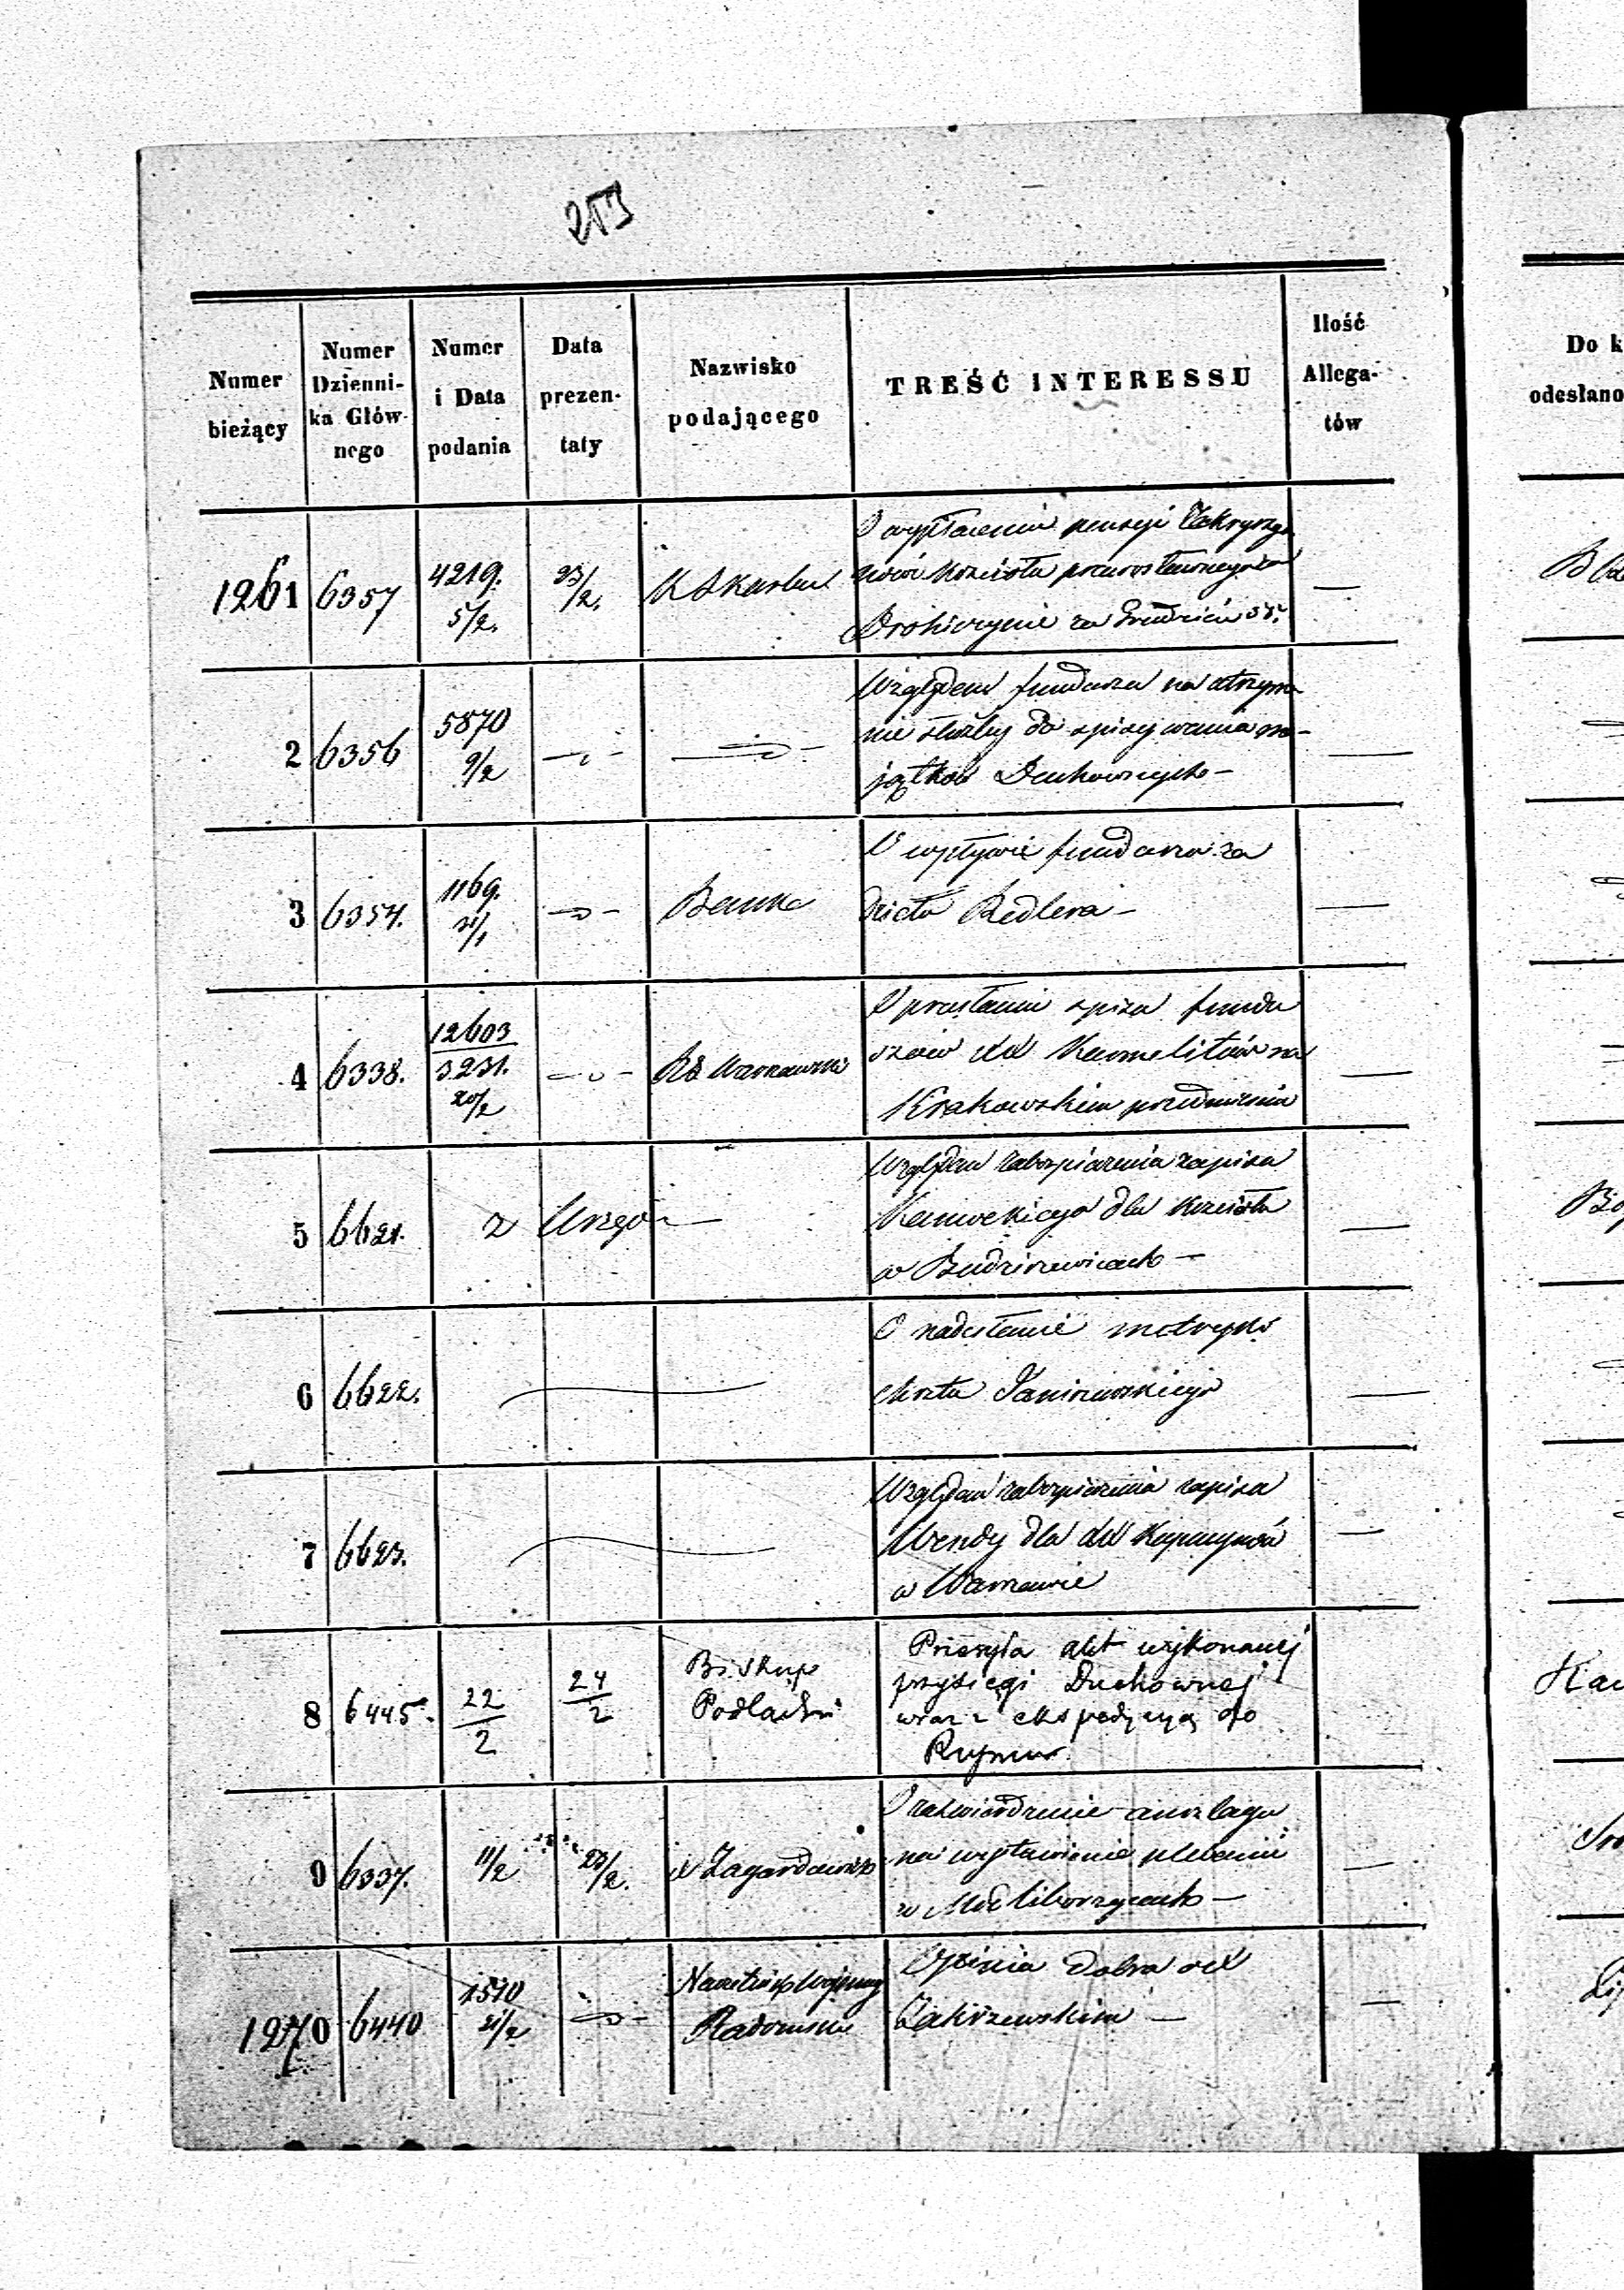 253
Numer bieżący
Numer Dzienni-ka Głów-nego
Numer i Data podania
Data prezen-taty
Nazwisko podającego
TREŚĆ INTERESSU
Ilość Allega-tów
Do k
odesłano
1261 6357 4219. 5/2. 23/2. K Skarbu
O wypłacenie pensyi
Kościoła prawosławnego
Drohiczynie za Grudzień —
2 6356 5870 9/2 — —
Względem funduszu na utrzyma
nie służby do spisywania ma-
jątków Duchownych — —
3 6354. 1169. 31/1 — Banku
O wpływie funduszu za
dzieła Redlera — —
4 6338. 12603 3231. 20/2 — RG Warszawski
O przesłaniu spisu fundu
szów XX Karmelitów na
Krakowskim przedmieściu —
5 6621. z Urzędu —
Względem zabezpieczenia zapisu
dla Kościoła
w Budziszewicach — —
6 6622. —
O nadesłanie metryki
chrztu Janiszewskiego —
7 6623. —
Względem zabezpieczenia zapisu
Wendy dla XX Kapucynów —
w Warszawie
8 6445. 22/2 24/2 Biskup
Podlaski
Przesyła akt wykonanej
przysięgi Duchownej
wraz z ekspedycyą do
Rzymu.
9 6337. 11/2 23/2. X Zagardowicz
O zatwierdzenie anszlagu
na wystawienie plebanii
w Modliborzycach — —
1270 6440 1510 21/2 — Naczelnik Wojenny
Radomski
Opinia dobra od X
Zakrzewskim — —